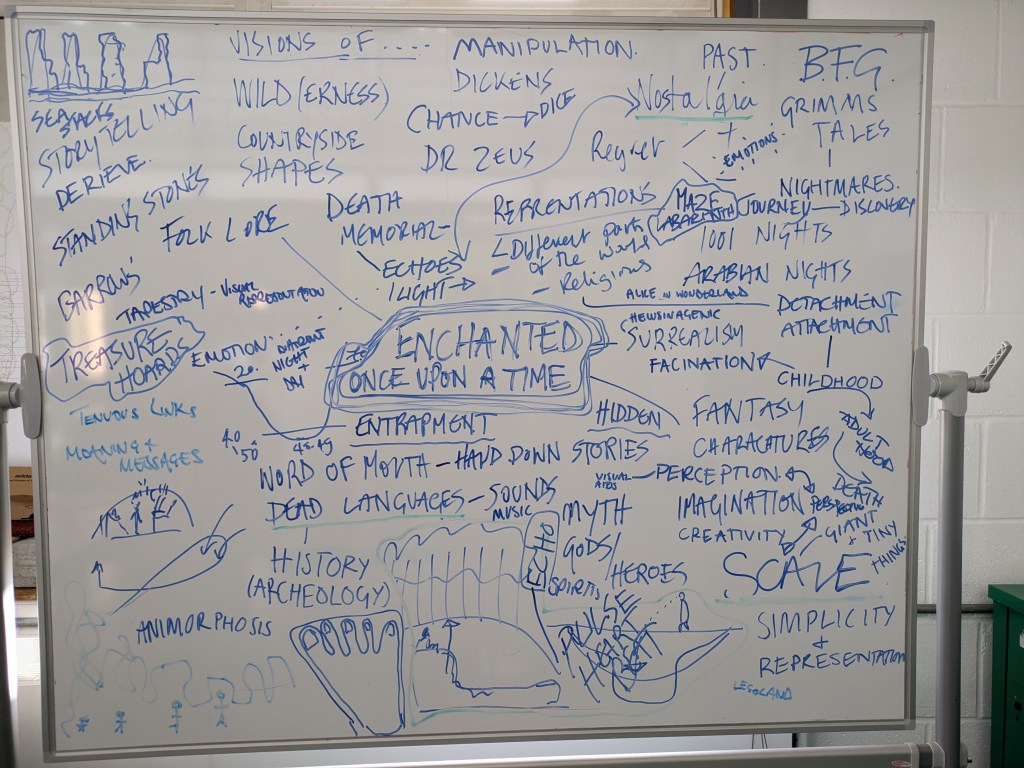 VISIONS OF.....
MANIPULATION.
PAST.
B.F.G.
SEA
STACKS
STORYTELLING
DERIEVE.
STANDING STONES
BARROWS
WILD(ERNESS)
COUNTRYSIDE
SHAPES
FOLK LORE
DICKENS
CHANCE → DICE
DR ZEUS
Nostalgia
Regret
+
EMOTIONS
GRIMMS
TALES
NIGHTMARES.
DEATH
MEMORIAL-
ECHOES
LIGHT →
REPRENTATIONS
- Different parts
of the world
- Religious
MAZE
LABARENTH
JOURNEY — DISCOVERY
1001 NIGHTS
ARABIAN NIGHTS
ALICE IN WONDERLAND
DETACHMENT
ATTACHMENT
TAPESTRY - VISUAL
REPRESENTATION
TREASURE
HOARDS
EMOTION:
DIFFERENT
NIGHT
+
DAY
20.
40
50
40.49
TENUOUS LINKS
MEANING &
MESSAGES
ENCHANTED
ONCE UPON A TIME
HEWSINAGENIC
SURREALISM
FACINATION
CHILDHOOD
ADULT
HOOD
DEATH
ENTRAPMENT
HIDDEN
FANTASY
CHARACATURES
WORD OF MOUTH - HAND DOWN STORIES
VISUAL
AIDS
PERCEPTION
DEAD LANGUAGES - SOUNDS
MUSIC
MYTH
GODS/
SPIRITS/
HEROES
IMAGINATION
CREATIVITY
GIANT
+ TINY
THINGS
SCALE
HISTORY
(ARCHEOLOGY)
ANIMORPHOSIS
PULSE
SIMPLICITY
+
REPRESENTATION
LEGOLAND